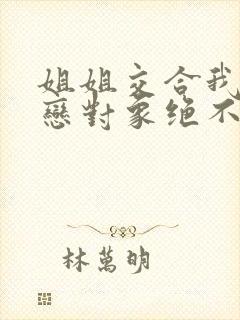 姐姐交合我
戀對象绝不
林萬明